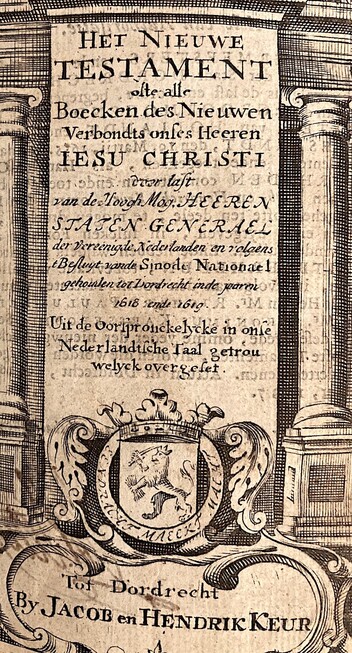 HET NIEUWE
TESTAMENT
ofte alle
Boecken des Nieuwen
Verbondts onses Heeren
IESU CHRISTI
door last
van de Hoogh Mog: HEEREN
STATEN GENERAEL
der Vereenigde Nederlanden en volgens
t Besluyt vande Sinode Nationael
gehouden tot Dordrecht inde jaren
1618 ende 1619.
Uit de Oorspronckelycke in onse
Nederlandtsche Taal getrou
welyck over geset.
MACKT MACHT
Tot Dordrecht
By JACOB en HENDRIK KEUR